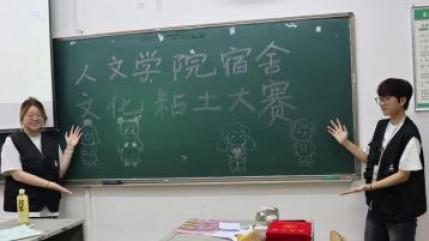 人文学院宿舍
文化粘土大赛